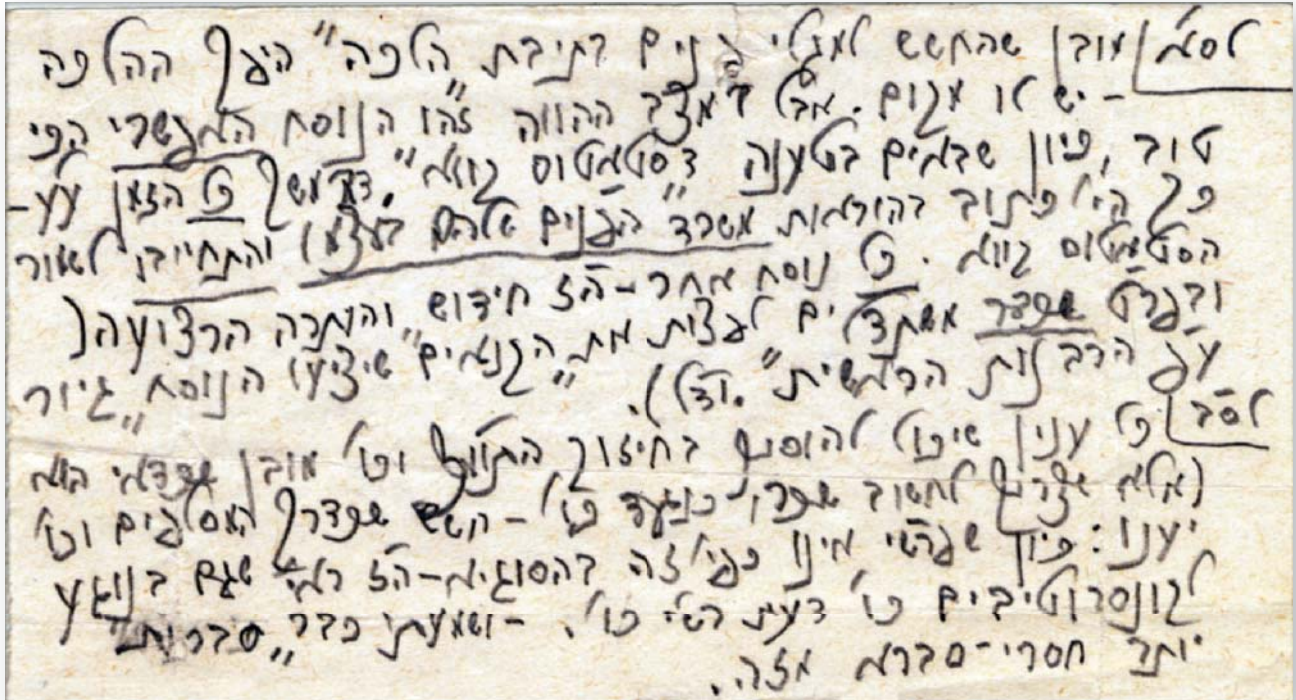 לס"א) מובן שהחשש למגלי פנים בתיבת "הלכה" היפך ההלכה
- יש לו מקום. אבל במצב ההווה זהו הנוסח האפשרי הכי
טוב, כיון שבאים בטענה ד"סטאטוס קווא". דבמשך כל הזמן
כך הי' כתוב בהוראות משרד הפנים שלהם בעצמו והתחייבו לשמור
הסטאטוס קווא. כל נוסח אחר - ה"ז חידוש, והותרה הרצועה (
ובפרט שכבר משתדלים לרצות את ה"קנאים" שיציעו הנוסח "גיור
ע"פ הרבנות הראשית". וד"ל).
לס"ב) כל ענין שיכול להוסיף בחיזוק התומ"צ וכו' מובן שכדאי הוא
(אלא שצריך לחשוב שכרו כנגד כו' - שכדרך המסלפים וכו'
יענו: כיון שפרש"י אינו כפי' זה בהסוגיא - ה"ז ראי' שגם בנוגע
לקונסרוטיבים כו' דעת רש"י כו'. - ושמעתי כבר "סברות"
יותר חסרי-סברא מזה.